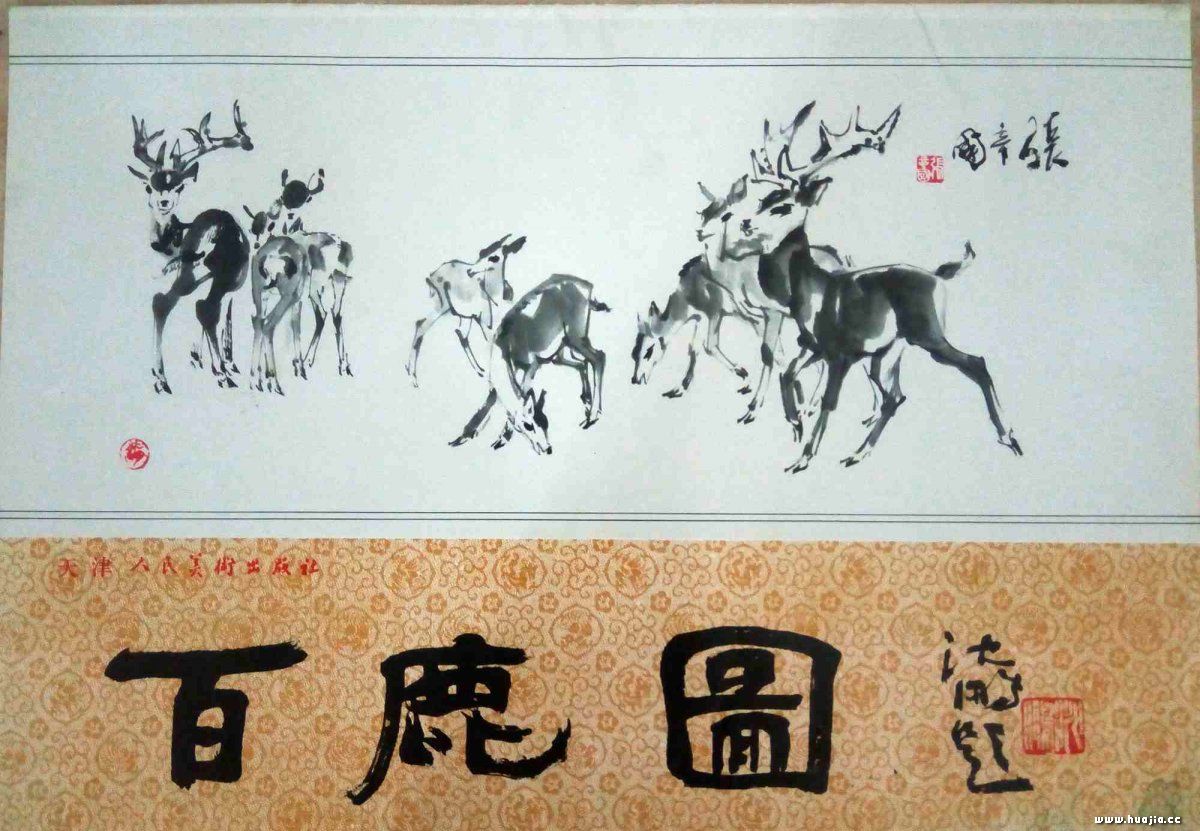 張辛國
天津人民美術出版社
百鹿圖
沈鵬題
www.huajia.cc